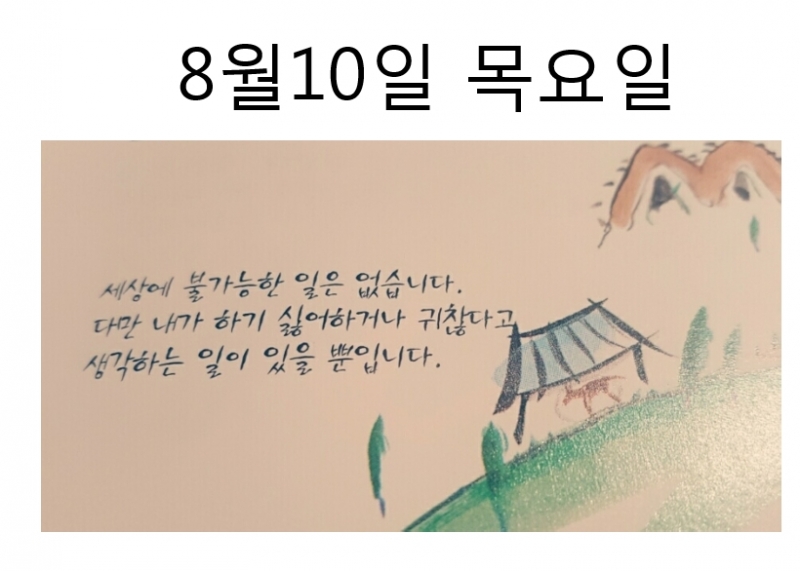 8월10일 목요일
세상에 불가능한 일은 없습니다.
다만 내가 하기 싫어하거나 귀찮다고
생각하는 일이 있을 뿐입니다.